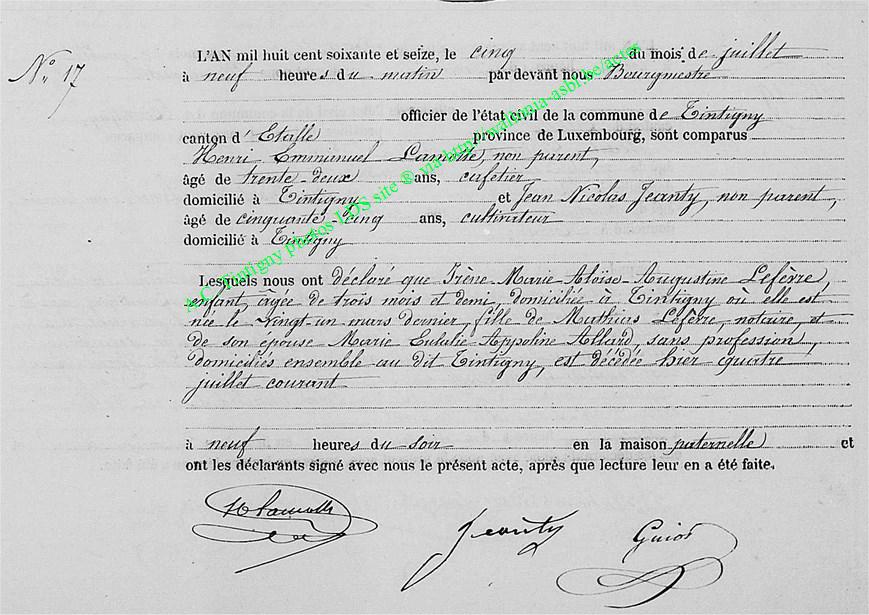 N° 17
L'AN mil huit cent soixante et seize, le cinq du mois de juillet
à neuf heures du matin par devant nous Bourgmestre
officier de l'état civil de la commune de Tintigny
canton d'Etalle province de Luxembourg, sont comparus
Henri Emmanuel Lamotte, non parent,
âgé de trente-deux ans, cafetier
domicilié à Tintigny et Jean Nicolas Jeanty, non parent,
âgé de cinquante cinq ans, cultivateur
domicilié à Tintigny
Lesquels nous ont déclaré que Irène Marie Aloïse-Augustine Lefèvre,
enfant, âgée de trois mois et demi, domiciliée à Tintigny où elle est
née le vingt un mars dernier, fille de Mathias Lefèvre, notaire, et
de son épouse Marie Eulalie Appoline Allard, sans profession,
domiciliés ensemble au dit Tintigny, est décédée hier quatre
juillet courant
à neuf heures du soir en la maison paternelle et
ont les déclarants signé avec nous le présent acte, après que lecture leur en a été faite.
HLamotte Jeanty Guiot
A.C. Tintigny photos LDS site ® via http://wallonia-asbl.be/actes